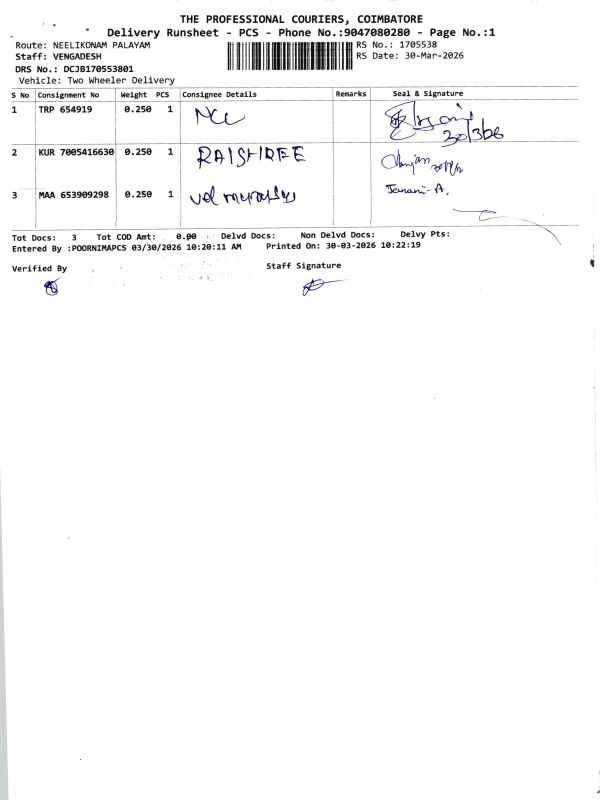 THE PROFESSIONAL COURIERS, COIMBATORE
Delivery Runsheet - PCS - Phone No.:9047080280 - Page No.:1
Route: NEELIKONAM PALAYAM RS No.: 1705538
Staff: VENGADESH RS Date: 30-Mar-2026
DRS No.: DCJB170553801
Vehicle: Two Wheeler Delivery
S No Consignment No Weight PCS Consignee Details Remarks Seal & Signature
1 TRP 654919 0.250 1
30/3/26
2 KUR 7005416630 0.250 1 RAISHREE
3 MAA 653909298 0.250 1 Janani-A.
Tot Docs: 3 Tot COD Amt: 0.00 Delvd Docs: Non Delvd Docs: Delvy Pts:
Entered By :POORNIMAPCS 03/30/2026 10:20:11 AM Printed On: 30-03-2026 10:22:19
Verified By Staff Signature